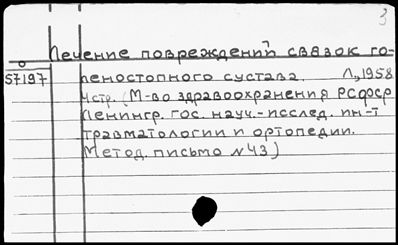 3
Лечение повреждений связок го-
57197 леностопного сустава. Л., 1958
4стр. (М-во здравоохранения РСФСР
Ленингр. гос. науч.-исслед. ин-т
травматологии и ортопедии.
Метод. письмо №43)